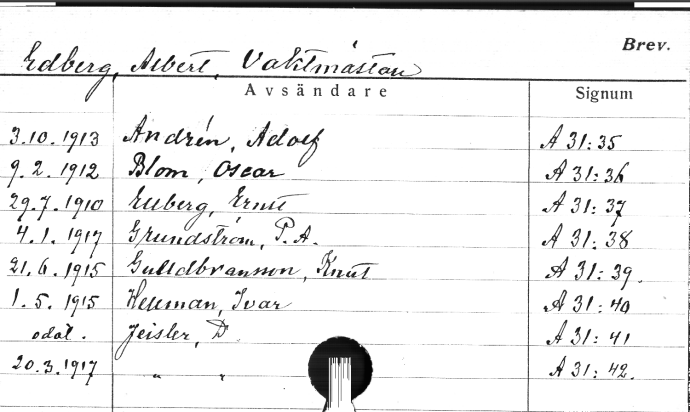 Brev.
Edberg, Albert, Vaktmästare
Avsändare Signum
3.10.1913 Andrén, Adolf A 31:35
9.2.1912 Blom, Oscar A 31:36
29.7.1910 Enberg, Ernst A 31:37
4.1.1917 Grundström, P.A. A 31:38
21.6.1915 Gulldbransson, Knut A 31:39.
1.5.1915 Heuman, Ivar A 31:40
odat. Jeisler, D. A 31:41
20.3.1917 " " A 31:42.